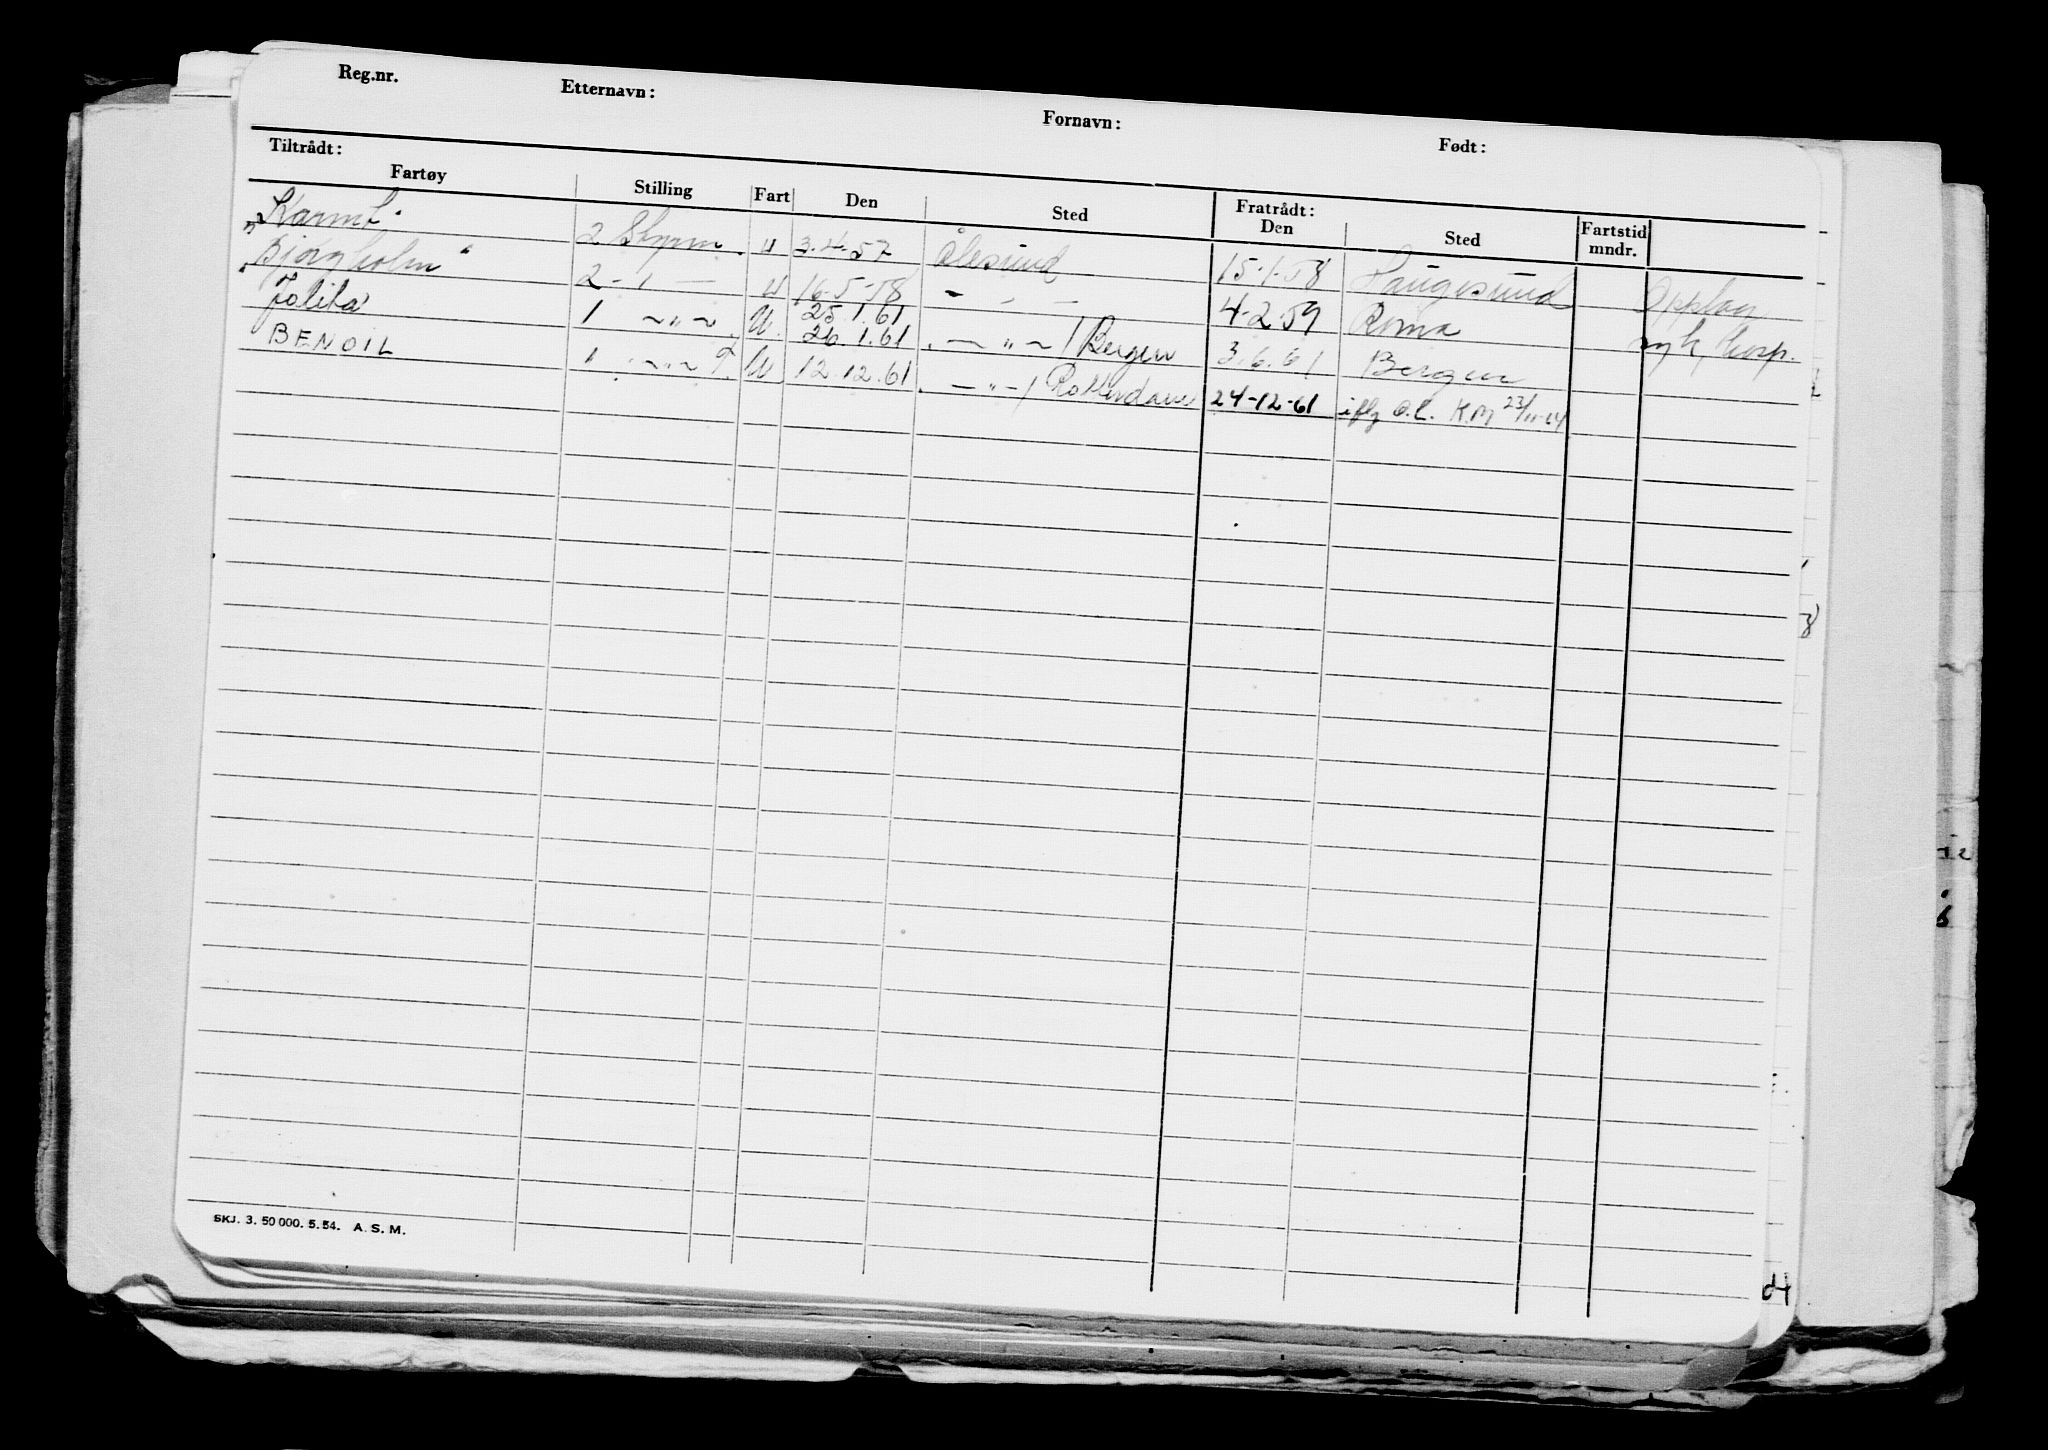 Reg.nr. Etternavn: Fornavn: Født:
Tiltrådt: Fratrådt:
Fartøy Stilling Fart Den Sted Den Sted Fartstid mndr.
"Karmt" 2 Styrm. U 3.4-57 Ålesund 15-1-58 Haugesund Opplag
"Bjørgholm" 2 - " — U 16-5-58 - - — 4-2-59 Roma syk, hosp.
Jolita 1 ~ " ~ U. 25.1.61 26.1.61 . — " ~ / Bergen 3.6.61 Bergen
BENOIL 1 ~ " ~ U 12.12.61 . — " - / Rotterdam 24-12-61 iflg K.M 23/
SKJ. 3. 50 000. 5. 54. A. S. M.